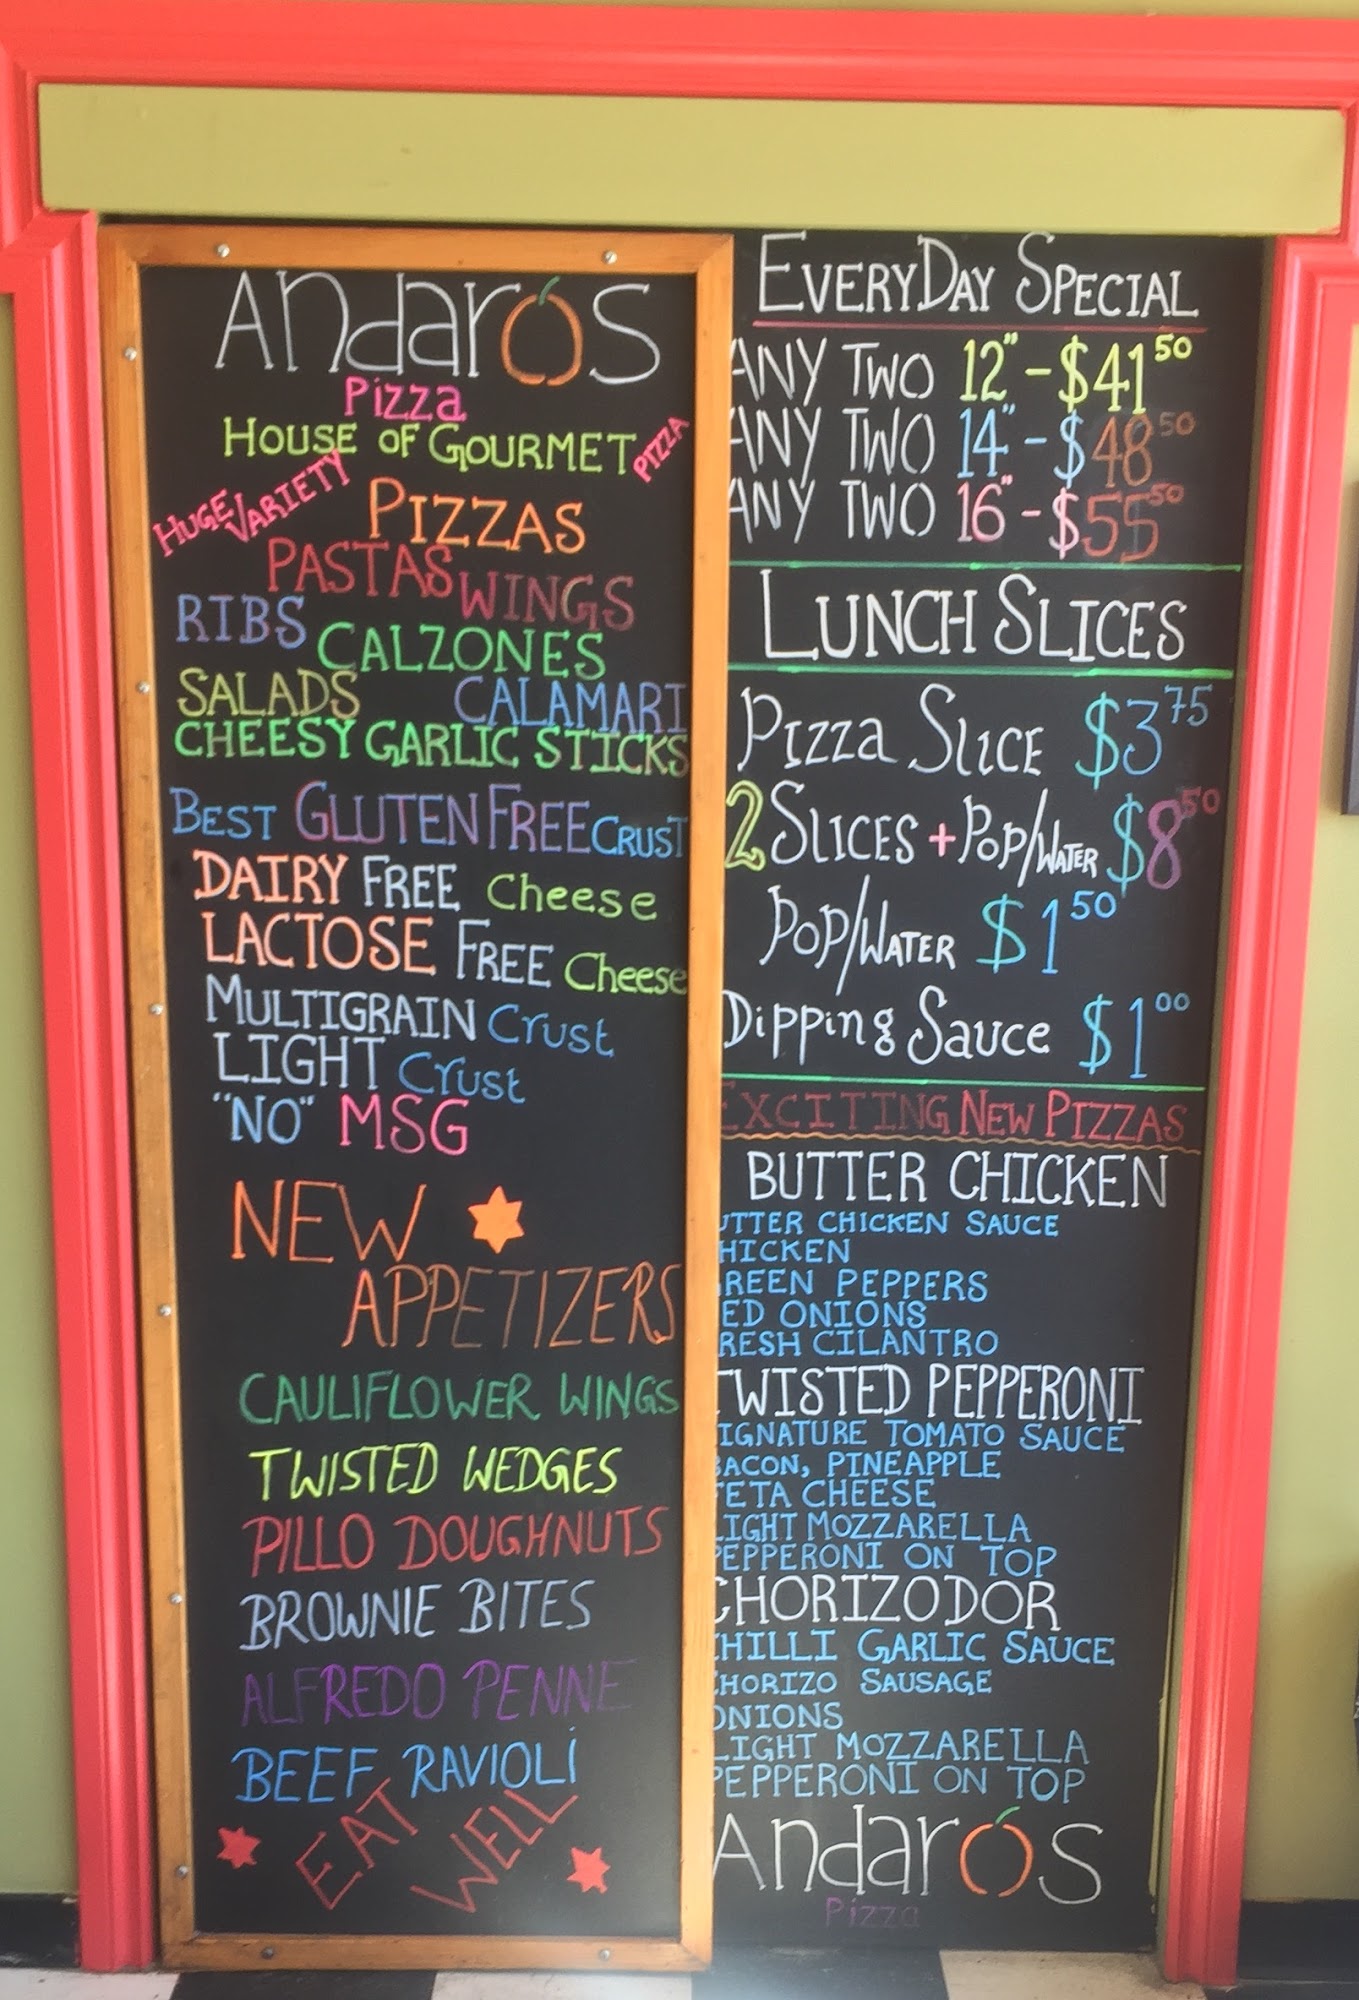 Andaros
Pizza
HOUSE OF GOURMET PIZZA
HUGE VARIETY
PIZZAS
PASTAS WINGS
RIBS CALZONES
SALADS CALAMARI
CHEESY GARLIC STICKS
BEST GLUTEN FREE CRUST
DAIRY FREE Cheese
LACTOSE FREE Cheese
MULTIGRAIN Crust
LIGHT Crust
"NO" MSG
NEW
APPETIZERS
CAULIFLOWER WINGS
TWISTED WEDGES
PILLO DOUGHNUTS
BROWNIE BITES
ALFREDO PENNE
BEEF RAVIOLi
EAT WELL
EVERYDAY SPECIAL
ANY TWO 12" - $41 50
ANY TWO 14" - $48 50
ANY TWO 16" - $55 50
LUNCH SLICES
PIZZa SLICE $3 75
2 SLICES + POP/WATER $8 50
POP/WATER $1 50
Dipping Sauce $1 00
EXCITING NEW PIZZAS
BUTTER CHICKEN
UTTER CHICKEN SAUCE
HICKEN
REEN PEPPERS
ED ONIONS
RESH CILANTRO
TWISTED PEPPERONI
IGNATURE TOMATO SAUCE
BACON, PINEAPPLE
FETA CHEESE
LIGHT MOZZARELLA
PEPPERONI ON TOP
CHORIZO DOR
CHILLI GARLIC SAUCE
CHORIZO SAUSAGE
ONIONS
LIGHT MOZZARELLA
PEPPERONI ON TOP
Andaros
Pizza